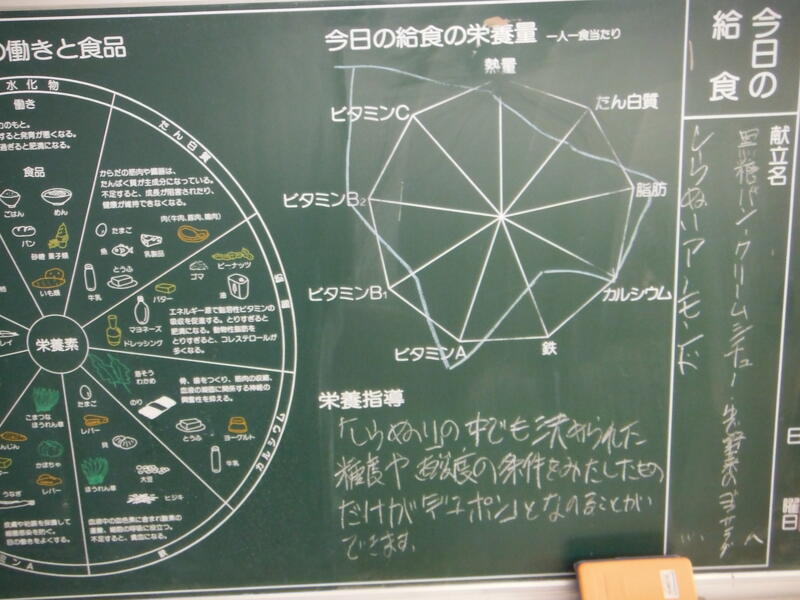 の働きと食品
今日の給食の栄養量 一人一食当たり
今日の
給食
献立名
黒糖パン・クリームシチュー・
しらぬい アーモンド
日
曜日
熱量
たん白質
脂肪
カルシウム
鉄
ビタミンA
ビタミンB1
ビタミンB2
ビタミンC
栄養指導
「しらぬい」の中でも決められた
糖度や酸度の条件をみたしたもの
だけが「デコポン」となのることが
できます。
水化物
働き
力のもと。
すると発育が悪くなる。
過ぎると肥満になる。
食品
ごはん
めん
パン
砂糖 菓子類
いも類
栄養素
たん白質
からだの筋肉や臓器は、
たんぱく質が主成分になっている。
不足すると、成長が阻害されたり、
健康が維持できなくなる。
肉(牛肉、豚肉、鶏肉)
たまご
魚
乳製品
牛乳
とうふ
脂肪
ピーナッツ
ゴマ
油
バター
マヨネーズ
ドレッシング
エネルギー源で脂溶性ビタミンの
吸収を促進する。とりすぎると
肥満になる。動物性脂肪を
とりすぎると、コレステロールが
多くなる。
カルシウム
骨、歯をつくり、筋肉の収縮、
血液の凝固に関係する神経の
興奮性を抑える。
わかめ
のり
とうふ
ヨーグルト
牛乳
鉄
たまご
レバー
貝
大豆
ほうれん草
ヒジキ
血液中の血色素に含まれ酸素の
運搬、細胞の呼吸に役立つ。
不足すると、貧血になる。
ミンA
こまつな
ほうれん草
んじん
かぼちゃ
レバー
うなぎ
皮膚や粘膜を保護して
細菌感染を防ぐ。
目の働きをよくする。